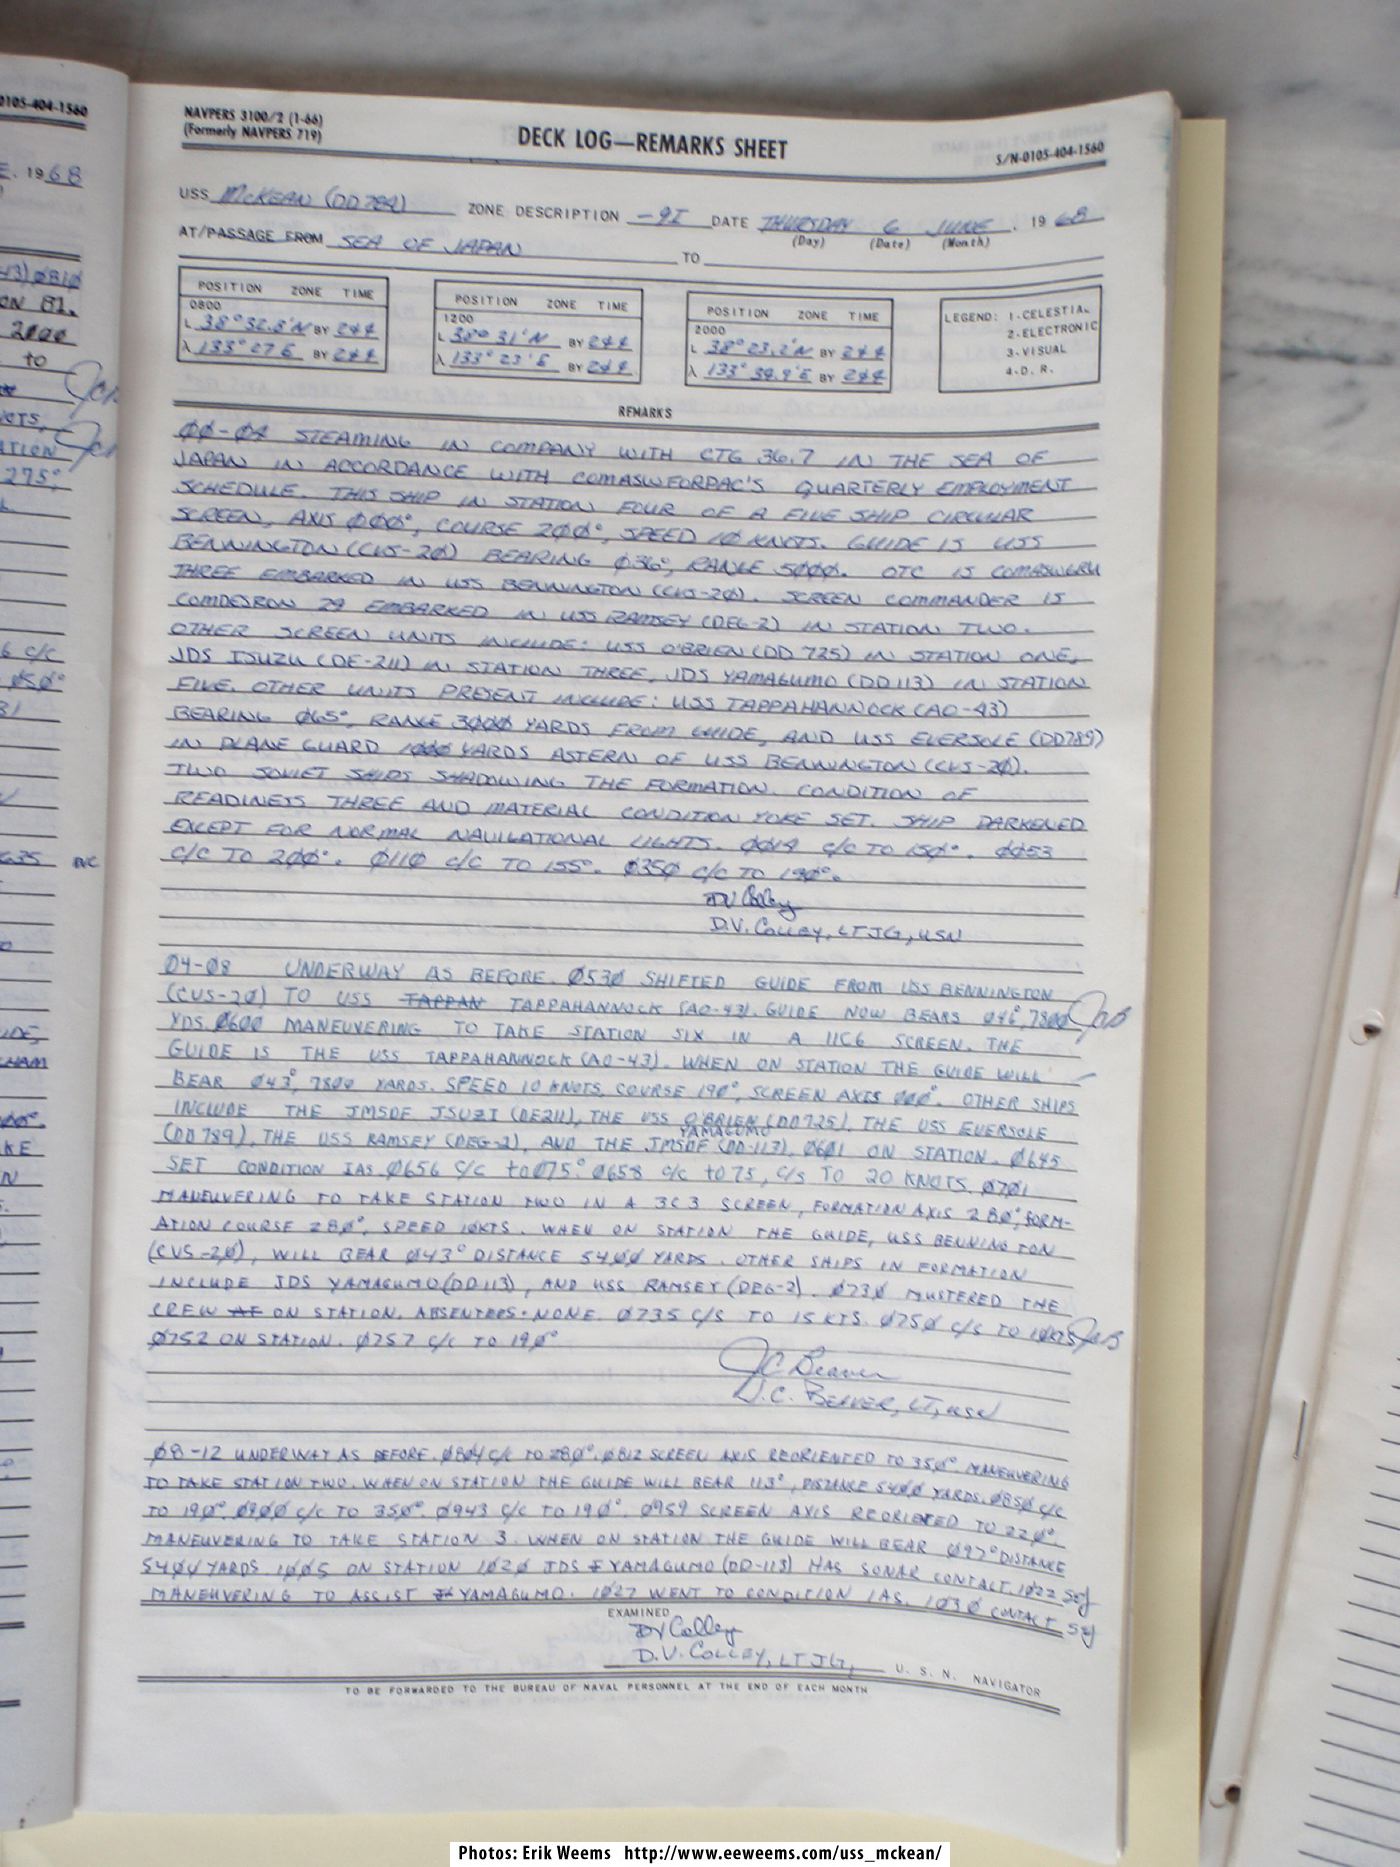 0105-404-1560
1968
NAVPERS 3100/2 (1-66)
(Formerly NAVPERS 719)
DECK LOG—REMARKS SHEET
S/N-0105-404-1560
USS McKEAN (DD784) ZONE DESCRIPTION -9I DATE THURSDAY 6 JUNE, 1968
(Day) (Date) (Month)
AT/PASSAGE FROM SEA OF JAPAN TO
POSITION ZONE TIME
0800
L 38° 32.8'N BY 2&4
λ 133° 27 E BY 2&4
POSITION ZONE TIME
1200
L 38° 31'N BY 2&4
λ 133° 23'E BY 2&4
POSITION ZONE TIME
2000
L 38° 23.2'N BY 2&4
λ 133° 39.9'E BY 2&4
LEGEND: 1-CELESTIAL
2-ELECTRONIC
3-VISUAL
4-D.R.
REMARKS
00-04 STEAMING IN COMPANY WITH CTG 36.7 IN THE SEA OF
JAPAN IN ACCORDANCE WITH COMASWFORPAC'S QUARTERLY EMPLOYMENT
SCHEDULE. THIS SHIP IN STATION FOUR OF A FIVE SHIP CIRCULAR
SCREEN, AXIS 000°, COURSE 200°, SPEED 10 KNOTS. GUIDE IS USS
BENNINGTON (CVS-20) BEARING 036°, RANGE 5000. OTC IS COMASWGRU
THREE EMBARKED IN USS BENNINGTON (CVS-20). SCREEN COMMANDER IS
COMDESRON 29 EMBARKED IN USS RAMSEY (DEG-2) IN STATION TWO.
OTHER SCREEN UNITS INCLUDE: USS O'BRIEN (DD 725) IN STATION ONE,
JDS ISUZU (DE-211) IN STATION THREE, JDS YAMAGUMO (DD113) IN STATION
FIVE. OTHER UNITS PRESENT INCLUDE: USS TAPPAHANNOCK (AO-43)
BEARING 065°, RANGE 3000 YARDS FROM GUIDE, AND USS EVERSOLE (DD789)
IN PLANE GUARD 1000 YARDS ASTERN OF USS BENNINGTON (CVS-20).
TWO SOVIET SHIPS SHADOWING THE FORMATION. CONDITION OF
READINESS THREE AND MATERIAL CONDITION YOKE SET. SHIP DARKENED
EXCEPT FOR NORMAL NAVIGATIONAL LIGHTS. 0014 C/C TO 150°. 0053
C/C TO 200°. 0110 C/C TO 155°. 0350 C/C TO 190°.
DV Colley
D.V. COLLEY, LTJG, USN
04-08 UNDERWAY AS BEFORE. 0530 SHIFTED GUIDE FROM USS BENNINGTON
(CVS-20) TO USS TAPPAN TAPPAHANNOCK (AO-43). GUIDE NOW BEARS 046°, 7800 JCB
YDS. 0600 MANEUVERING TO TAKE STATION SIX IN A 11C6 SCREEN. THE
GUIDE IS THE USS TAPPAHANNOCK (AO-43). WHEN ON STATION THE GUIDE WILL
BEAR 043°, 7800 YARDS. SPEED 10 KNOTS, COURSE 190°, SCREEN AXIS 000°. OTHER SHIPS
INCLUDE THE JMSDF JSUZI (DE211), THE USS O'BRIEN (DD725), THE USS EVERSOLE
(DD789), THE USS RAMSEY (DEG-2), AND THE JMSDF YAMAGUMO (DD-113). 0601 ON STATION. 0645
SET CONDITION IAS. 0656 C/C to 075°. 0658 C/C to 75, C/S TO 20 KNOTS. 0701
MANEUVERING TO TAKE STATION TWO IN A 3C3 SCREEN, FORMATION AXIS 280°, FORM-
ATION COURSE 280°, SPEED 10KTS. WHEN ON STATION THE GUIDE, USS BENNINGTON
(CVS-20), WILL BEAR 043° DISTANCE 5400 YARDS. OTHER SHIPS IN FORMATION
INCLUDE JDS YAMAGUMO (DD113), AND USS RAMSEY (DEG-2). 0730 MUSTERED THE
CREW AT ON STATION. ABSENTEES: NONE. 0735 C/S TO 15 KTS. 0750 C/S TO 10KTS JCB
0752 ON STATION. 0757 C/C TO 190°
JC Beaver
J.C. BEAVER, LT, USN
08-12 UNDERWAY AS BEFORE. 0804 C/C TO 280°. 0812 SCREEN AXIS REORIENTED TO 350°. MANEUVERING
TO TAKE STATION TWO. WHEN ON STATION THE GUIDE WILL BEAR 113°, DISTANCE 5400 YARDS. 0850 C/C
TO 190°. 0900 C/C TO 350°. 0943 C/C TO 190°. 0959 SCREEN AXIS REORIENTED TO 220°.
MANEUVERING TO TAKE STATION 3. WHEN ON STATION THE GUIDE WILL BEAR 097° DISTANCE
5400 YARDS. 1005 ON STATION 1020 JDS YAMAGUMO (DD-113) HAS SONAR CONTACT. 1022
MANEUVERING TO ASSIST YAMAGUMO. 1027 WENT TO CONDITION IAS. 1030 CONTACT
EXAMINED
DV Colley
D.V. COLLEY, LTJG, U. S. N. NAVIGATOR
TO BE FORWARDED TO THE BUREAU OF NAVAL PERSONNEL AT THE END OF EACH MONTH
Photos: Erik Weems http://www.eeweems.com/uss_mckean/